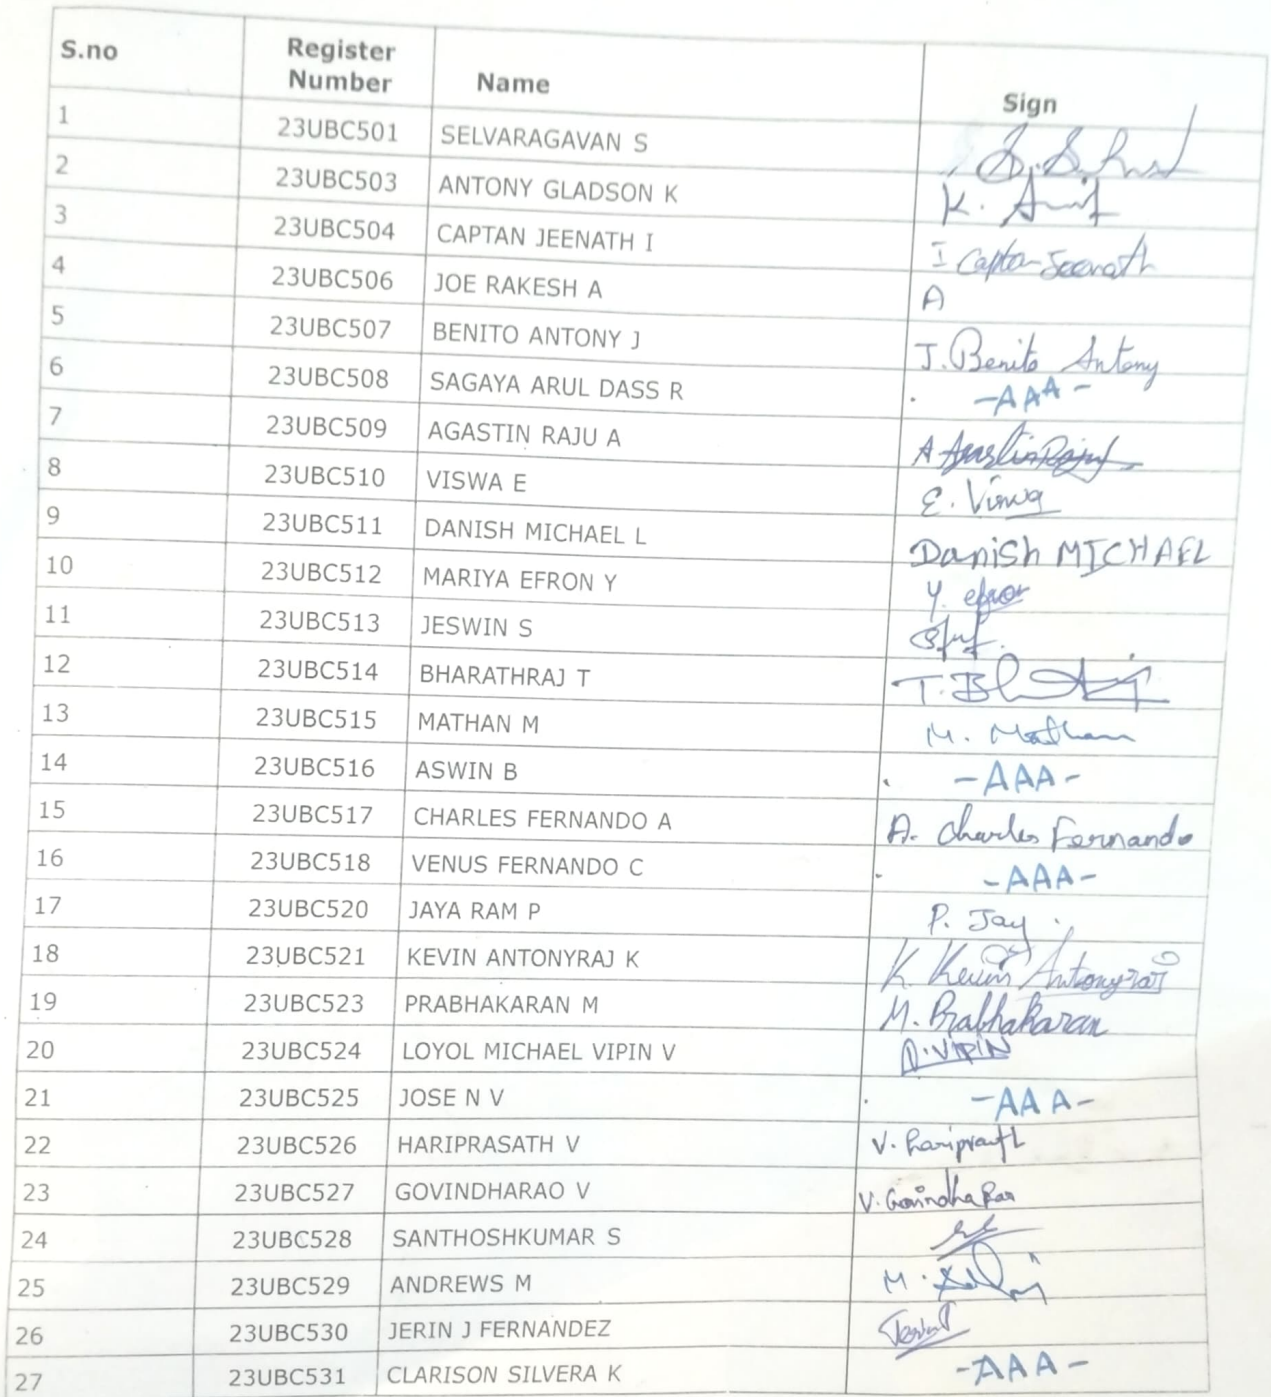 S.no Register Number Name Sign
1 23UBC501 SELVARAGAVAN S
2 23UBC503 ANTONY GLADSON K K.
3 23UBC504 CAPTAN JEENATH I I Captan Jeenath
4 23UBC506 JOE RAKESH A A
5 23UBC507 BENITO ANTONY J J. Benito Antony
6 23UBC508 SAGAYA ARUL DASS R -AAA-
7 23UBC509 AGASTIN RAJU A A
8 23UBC510 VISWA E E. Viswa
9 23UBC511 DANISH MICHAEL L Danish MICHAEL
10 23UBC512 MARIYA EFRON Y Y. efron
11 23UBC513 JESWIN S
12 23UBC514 BHARATHRAJ T T.
13 23UBC515 MATHAN M M. Mathan
14 23UBC516 ASWIN B -AAA-
15 23UBC517 CHARLES FERNANDO A A. Charles Fernando
16 23UBC518 VENUS FERNANDO C -AAA-
17 23UBC520 JAYA RAM P P. Jay
18 23UBC521 KEVIN ANTONYRAJ K K. Kevin Antonyraj
19 23UBC523 PRABHAKARAN M M. Prabhakaran
20 23UBC524 LOYOL MICHAEL VIPIN V VIPIN
21 23UBC525 JOSE N V -AAA-
22 23UBC526 HARIPRASATH V V.
23 23UBC527 GOVINDHARAO V V. Govindha Rao
24 23UBC528 SANTHOSHKUMAR S
25 23UBC529 ANDREWS M M.
26 23UBC530 JERIN J FERNANDEZ
27 23UBC531 CLARISON SILVERA K -AAA-